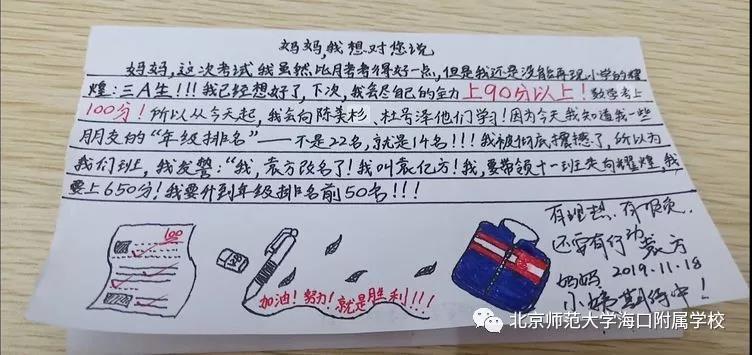 妈妈,我想对您说
妈妈,这次考试我虽然比月考考得好一点,但是我还是没能再现小学的辉
煌:三A生!!!我已经想好了,下次,我会尽自己的全力上90分以上!数学考上
100分!所以从今天起,我会向陈美杉、杜号泽他们学习!因为今天我知道我一些
朋友的“年级排名”——不是22名,就是14名!!!我被彻底震撼了,所以为
我们班,我发誓:“我,袁方改名了!我叫袁亿方!我,要带领十一班走向耀煌,我
要上650分!我要升到年级排名前50名!!!
100
加油!努力!就是胜利!!!
有理想、有抱负,
还要有行动
袁方
妈妈 2019.11.18
小姨期待中!
北京师范大学海口附属学校